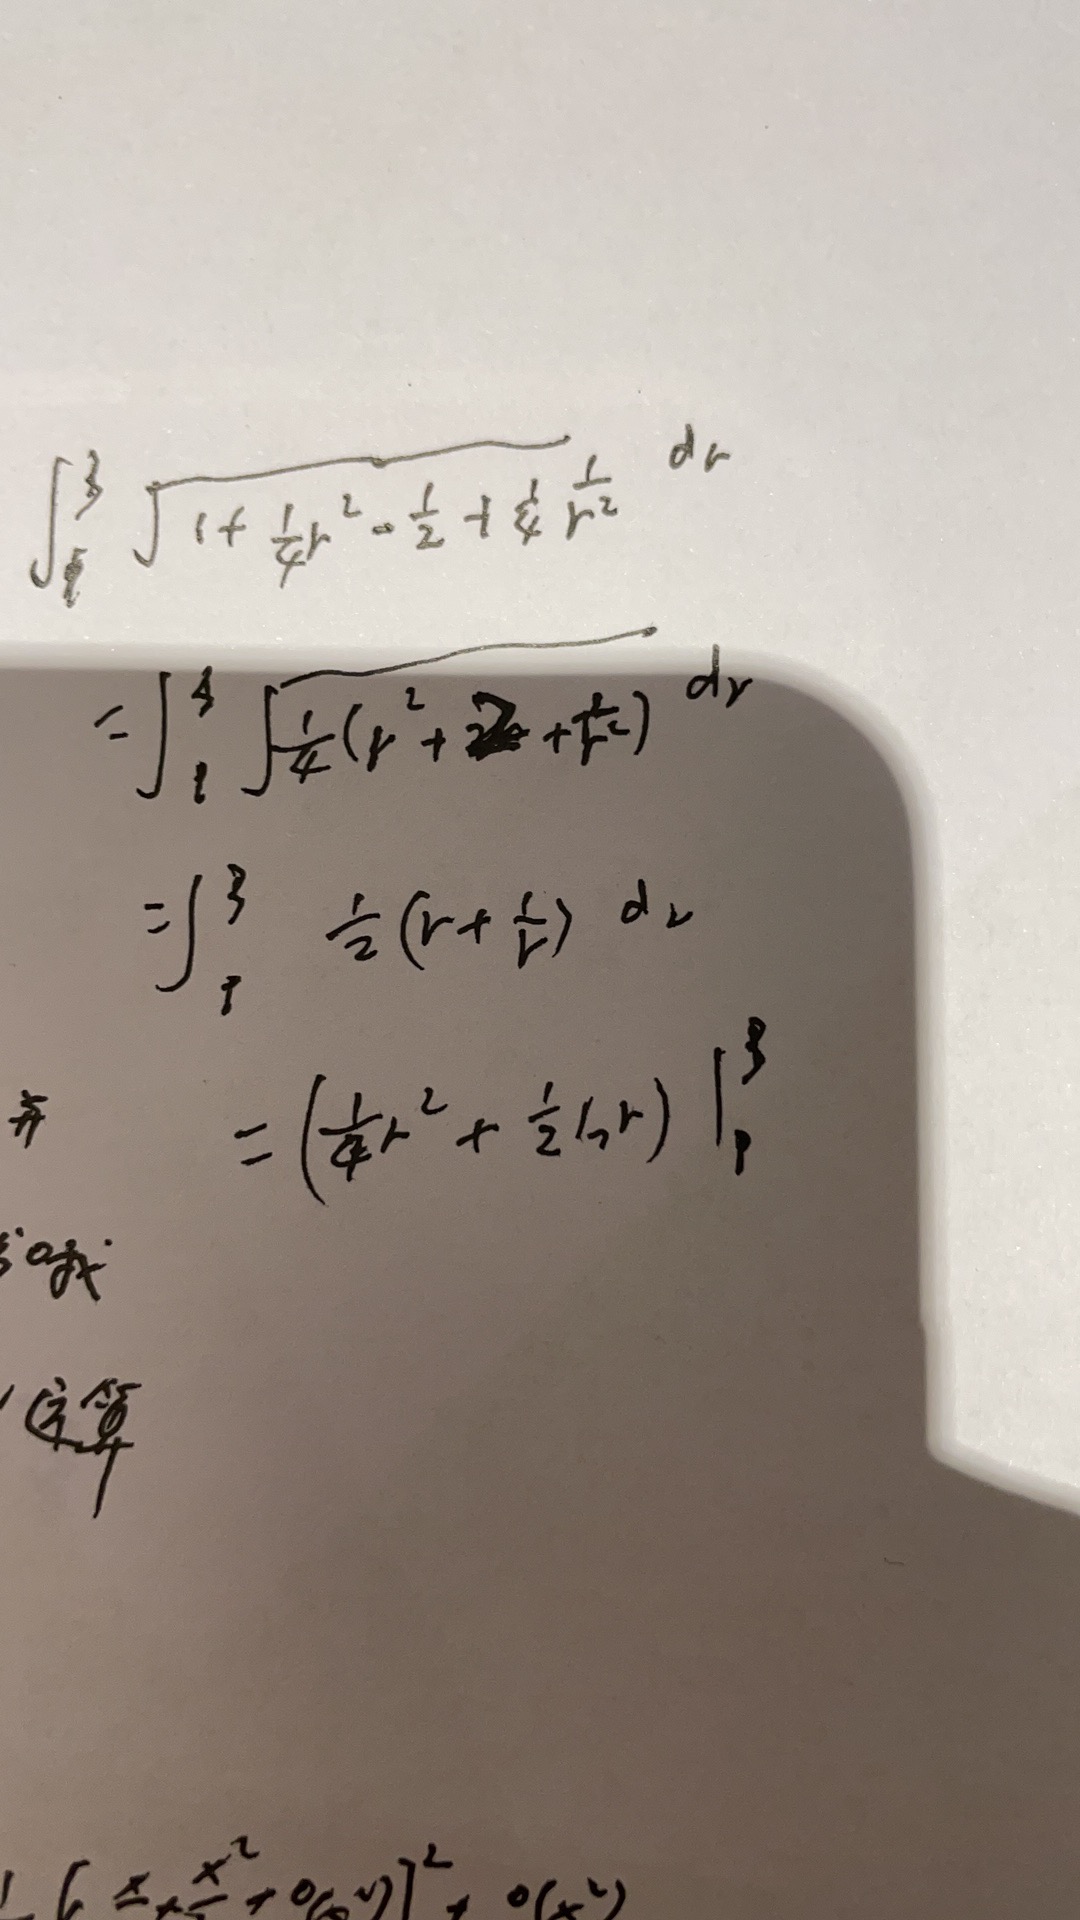 ∫₁³ √(1 + 1/4 r² - 1/2 + 1/4 1/r²) dr
= ∫₁³ √(1/4 (r² + 2 + 1/r²)) dr
= ∫₁³ 1/2 (r + 1/r) dr
= (1/4 r² + 1/2 ln r) |₁³
算
x + x²/2 + o(x²)]² + o(x²)